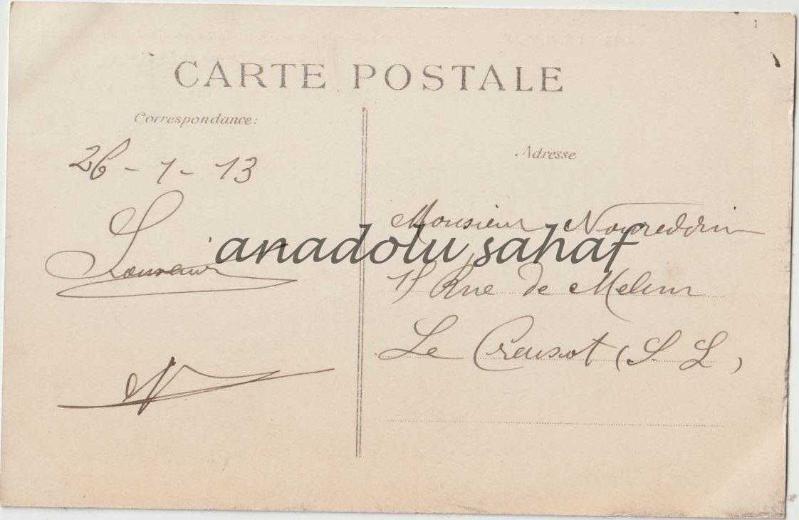 CARTE POSTALE
Correspondance:
Adresse
26-1-13
Souvenir
anadolu sahaf
Monsieur Noureddin
Rue de Melun
Le Creusot (S. L.)